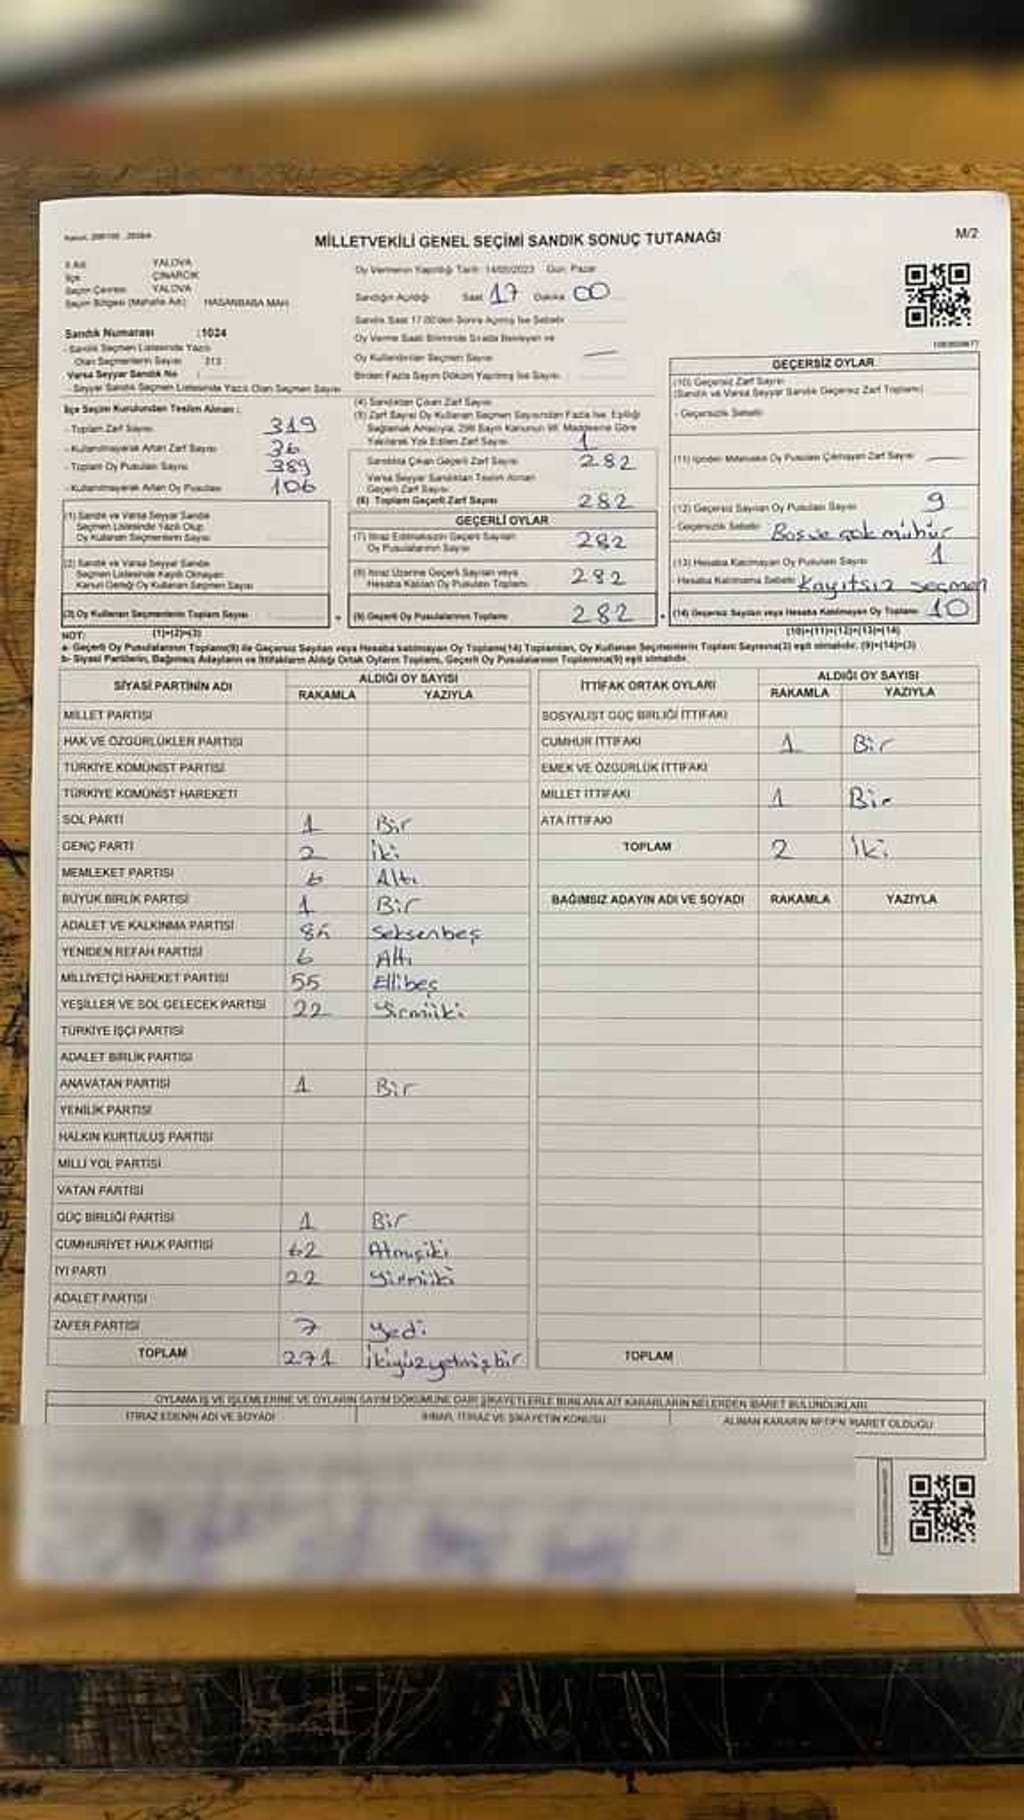 MİLLETVEKİLİ GENEL SEÇİMİ SANDIK SONUÇ TUTANAĞI
M/2
İl Adı YALOVA
İlçe ÇINARCIK
Seçim Çevresi YALOVA
Seçim Bölgesi (Mahalle Adı) HASANBABA MAH
Oy Vermenin Yapıldığı Tarih 14/05/2023 Gün: Pazar
Sandığın Açıldığı Saat 17 Dakika 00
Sandık Saat 17.00'den Sonra Açılmış İse Sebebi
Oy Verme Saati Bitiminde Sırada Bekleyen ve
Oy Kullandırılan Seçmen Sayısı
Birden Fazla Sayım Döküm Yapılmış İse Sayısı
Sandık Numarası :1024
- Sandık Seçmen Listesinde Yazılı
Olan Seçmenlerin Sayısı 313
Varsa Seyyar Sandık No :
- Seyyar Sandık Seçmen Listesinde Yazılı Olan Seçmen Sayısı
İlçe Seçim Kurulundan Teslim Alınan :
- Toplam Zarf Sayısı 319
- Kullanılmayarak Artan Zarf Sayısı 36
- Toplam Oy Pusulası Sayısı 389
- Kullanılmayarak Artan Oy Pusulası 106
(1) Sandık ve Varsa Seyyar Sandık
Seçmen Listesinde Yazılı Olup
Oy Kullanan Seçmenlerin Sayısı
(2) Sandık ve Varsa Seyyar Sandık
Seçmen Listesinde Kayıtlı Olmayan
Kanun Gereği Oy Kullanan Seçmen Sayısı
(3) Oy Kullanan Seçmenlerin Toplam Sayısı
(1)+(2)=(3)
(4) Sandıktan Çıkan Zarf Sayısı
(5) Zarf Sayısı Oy Kullanan Seçmen Sayısından Fazla İse, Eşitliği
Sağlamak Amacıyla, 298 Sayılı Kanunun 98. Maddesine Göre
Yakılarak Yok Edilen Zarf Sayısı 1
Sandıkta Çıkan Geçerli Zarf Sayısı 282
Varsa Seyyar Sandıktan Teslim Alınan
Geçerli Zarf Sayısı
(6) Toplam Geçerli Zarf Sayısı 282
GEÇERLİ OYLAR
(7) İtiraz Edilmeksizin Geçerli Sayılan
Oy Pusulalarının Sayısı 282
(8) İtiraz Üzerine Geçerli Sayılan veya
Hesaba Katılan Oy Pusulaları Toplamı 282
(9) Geçerli Oy Pusulalarının Toplamı 282
GEÇERSİZ OYLAR
(10) Geçersiz Zarf Sayısı
(Sandık ve Varsa Seyyar Sandık Geçersiz Zarf Toplamı)
- Geçersizlik Sebebi
(11) İçinden Milletvekili Oy Pusulası Çıkmayan Zarf Sayısı
(12) Geçersiz Sayılan Oy Pusulası Sayısı 9
Geçersizlik Sebebi Boş ve çok mühür
(13) Hesaba Katılmayan Oy Pusulası Sayısı 1
Hesaba Katılmama Sebebi Kayıtsız seçmen
(14) Geçersiz Sayılan veya Hesaba Katılmayan Oy Toplamı 10
(10)+(11)+(12)+(13)=(14)
NOT:
a- Geçerli Oy Pusulalarının Toplamı(9) ile Geçersiz Sayılan veya Hesaba katılmayan Oy Toplamı(14) Toplamları, Oy Kullanan Seçmenlerin Toplam Sayısına(3) eşit olmalıdır. (9)+(14)=(3)
b- Siyasi Partilerin, Bağımsız Adayların ve İttifakların Aldığı Ortak Oyların Toplamı, Geçerli Oy Pusulalarının Toplamına(9) eşit olmalıdır.
SİYASİ PARTİNİN ADI ALDIĞI OY SAYISI
RAKAMLA YAZIYLA
MİLLET PARTİSİ
HAK VE ÖZGÜRLÜKLER PARTİSİ
TÜRKİYE KOMÜNİST PARTİSİ
TÜRKİYE KOMÜNİST HAREKETİ
SOL PARTİ 1 Bir
GENÇ PARTİ 2 İki
MEMLEKET PARTİSİ 6 Altı
BÜYÜK BİRLİK PARTİSİ 1 Bir
ADALET VE KALKINMA PARTİSİ 85 Seksenbeş
YENİDEN REFAH PARTİSİ 6 Altı
MİLLİYETÇİ HAREKET PARTİSİ 55 Ellibeş
YEŞİLLER VE SOL GELECEK PARTİSİ 22 Yirmiiki
TÜRKİYE İŞÇİ PARTİSİ
ADALET BİRLİK PARTİSİ
ANAVATAN PARTİSİ 1 Bir
YENİLİK PARTİSİ
HALKIN KURTULUŞ PARTİSİ
MİLLİ YOL PARTİSİ
VATAN PARTİSİ
GÜÇ BİRLİĞİ PARTİSİ 1 Bir
CUMHURİYET HALK PARTİSİ 62 Atmışiki
İYİ PARTİ 22 Yirmiiki
ADALET PARTİSİ
ZAFER PARTİSİ 7 Yedi
TOPLAM 271 İkiyüzyetmişbir
İTTİFAK ORTAK OYLARI ALDIĞI OY SAYISI
RAKAMLA YAZIYLA
SOSYALİST GÜÇ BİRLİĞİ İTTİFAKI
CUMHUR İTTİFAKI 1 Bir
EMEK VE ÖZGÜRLÜK İTTİFAKI
MİLLET İTTİFAKI 1 Bir
ATA İTTİFAKI
TOPLAM 2 İki
BAĞIMSIZ ADAYIN ADI VE SOYADI RAKAMLA YAZIYLA
TOPLAM
OYLAMA İŞ VE İŞLEMLERİNE VE OYLARIN SAYIM DÖKÜMÜNE DAİR ŞİKAYETLERLE BUNLARA AİT KARARLARIN NELERDEN İBARET BULUNDUKLARI
İTİRAZ EDENİN ADI VE SOYADI İHBAR, İTİRAZ VE ŞİKAYETİN KONUSU ALINAN KARARIN NEDEN İBARET OLDUĞU